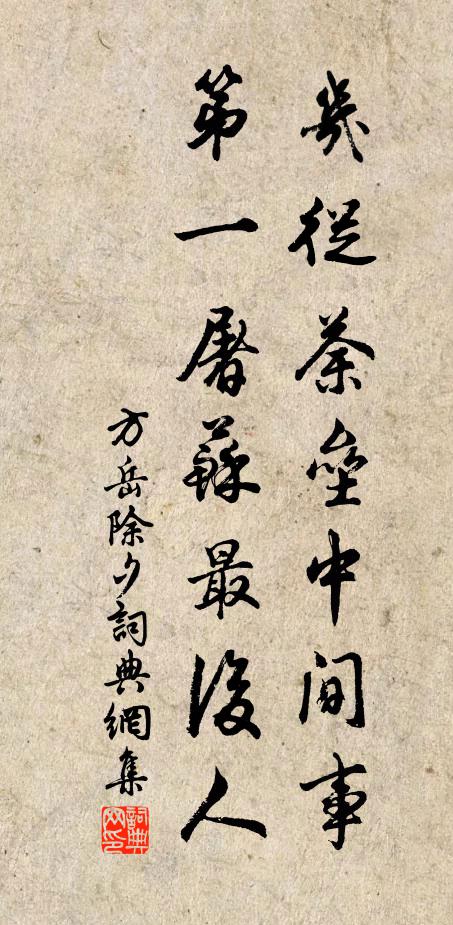 幾從荼壘中間事
第一屠蘇最後人
方岳除夕詞典網集
詞典网印